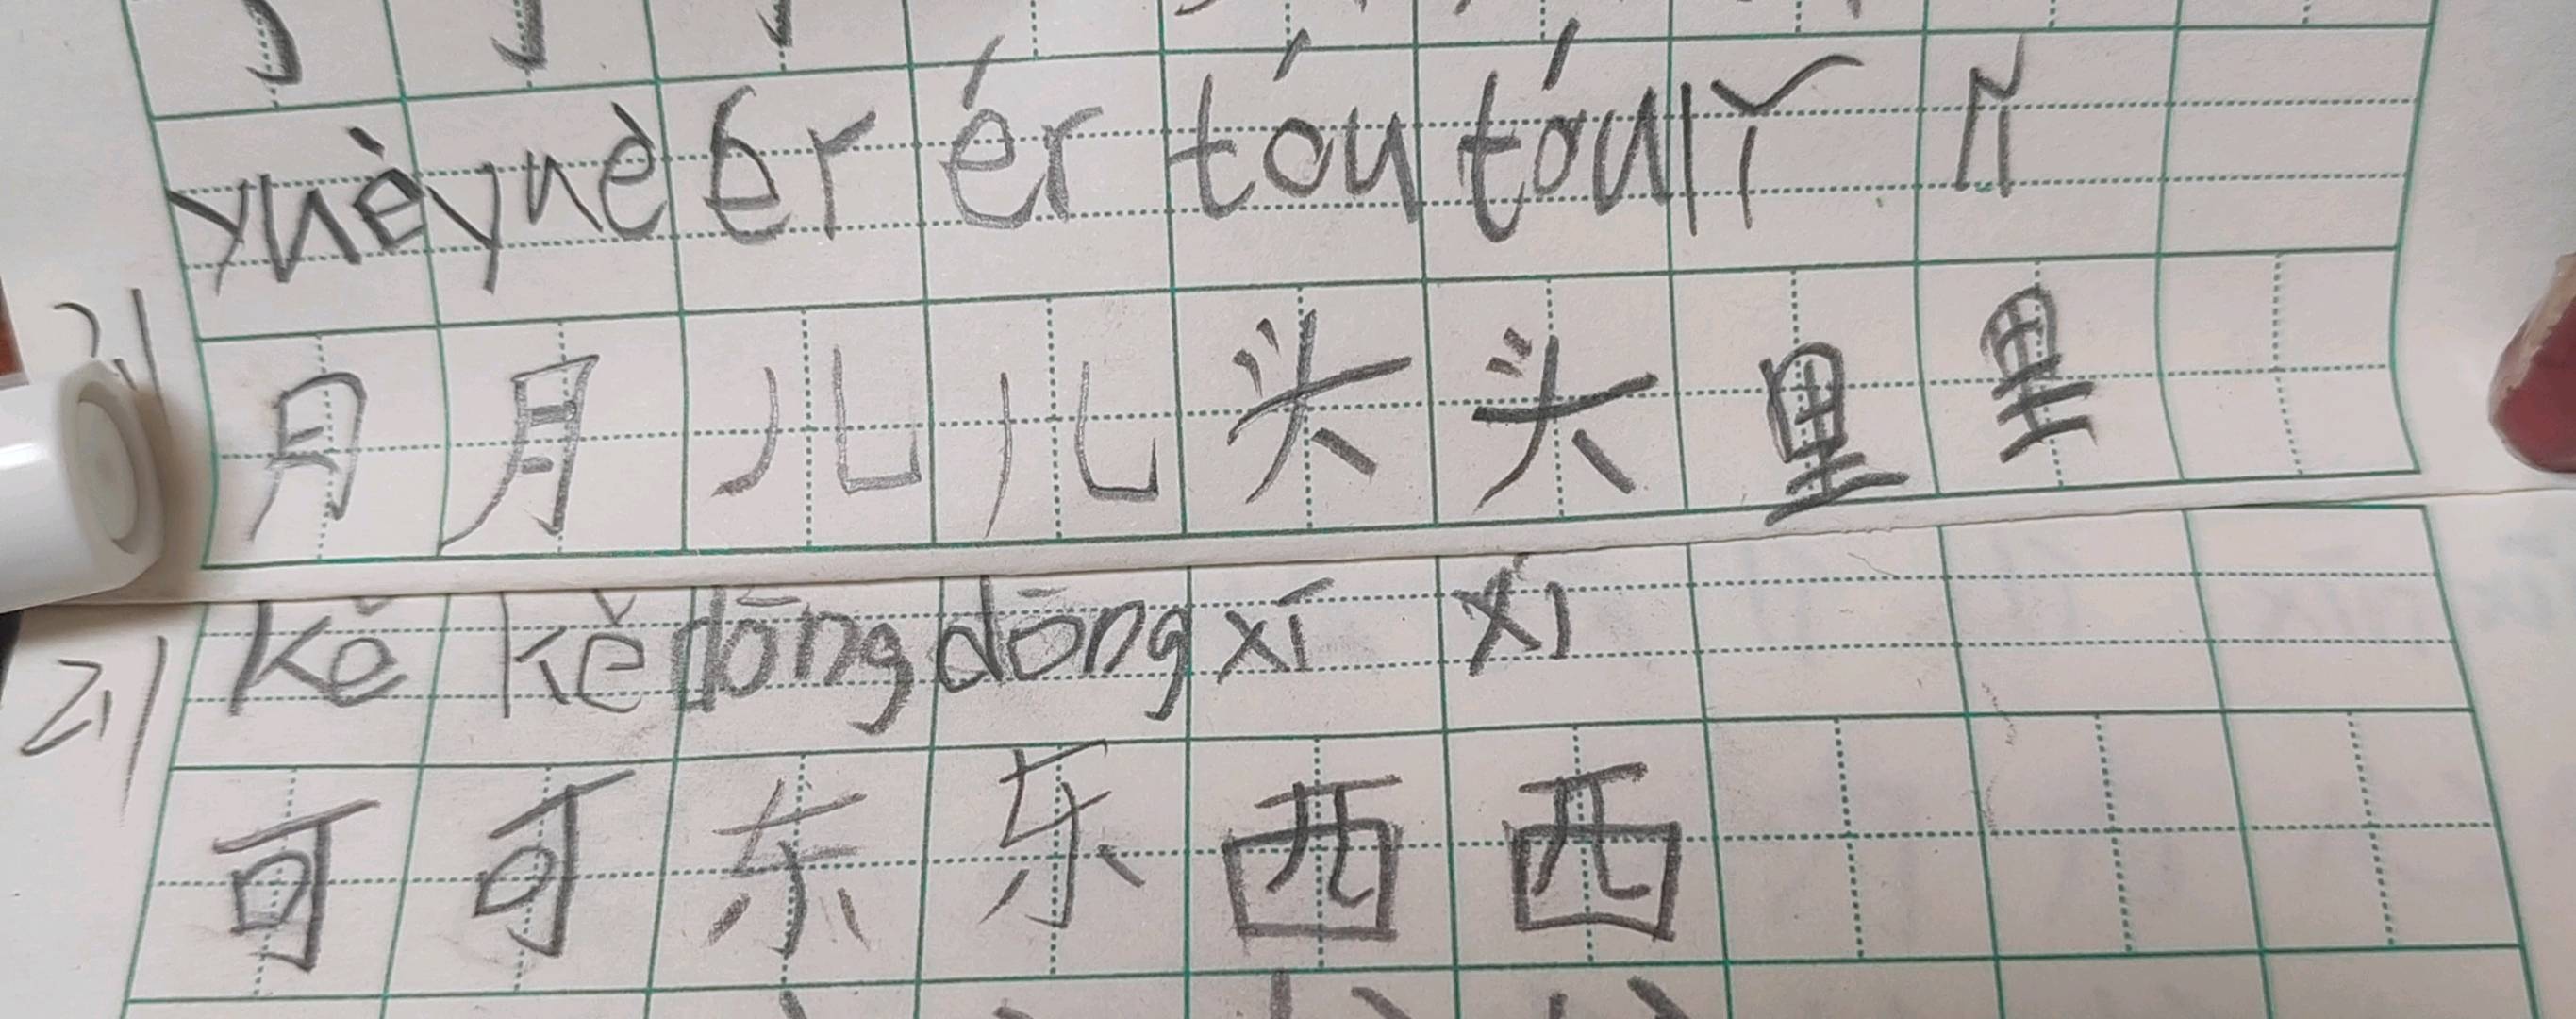 yuè yuè ér ér tóu tóu lǐ lǐ
月 月 儿 儿 头 头 里 里
kě kě dōng dōng xī xī
21
可 可 东 东 西 西